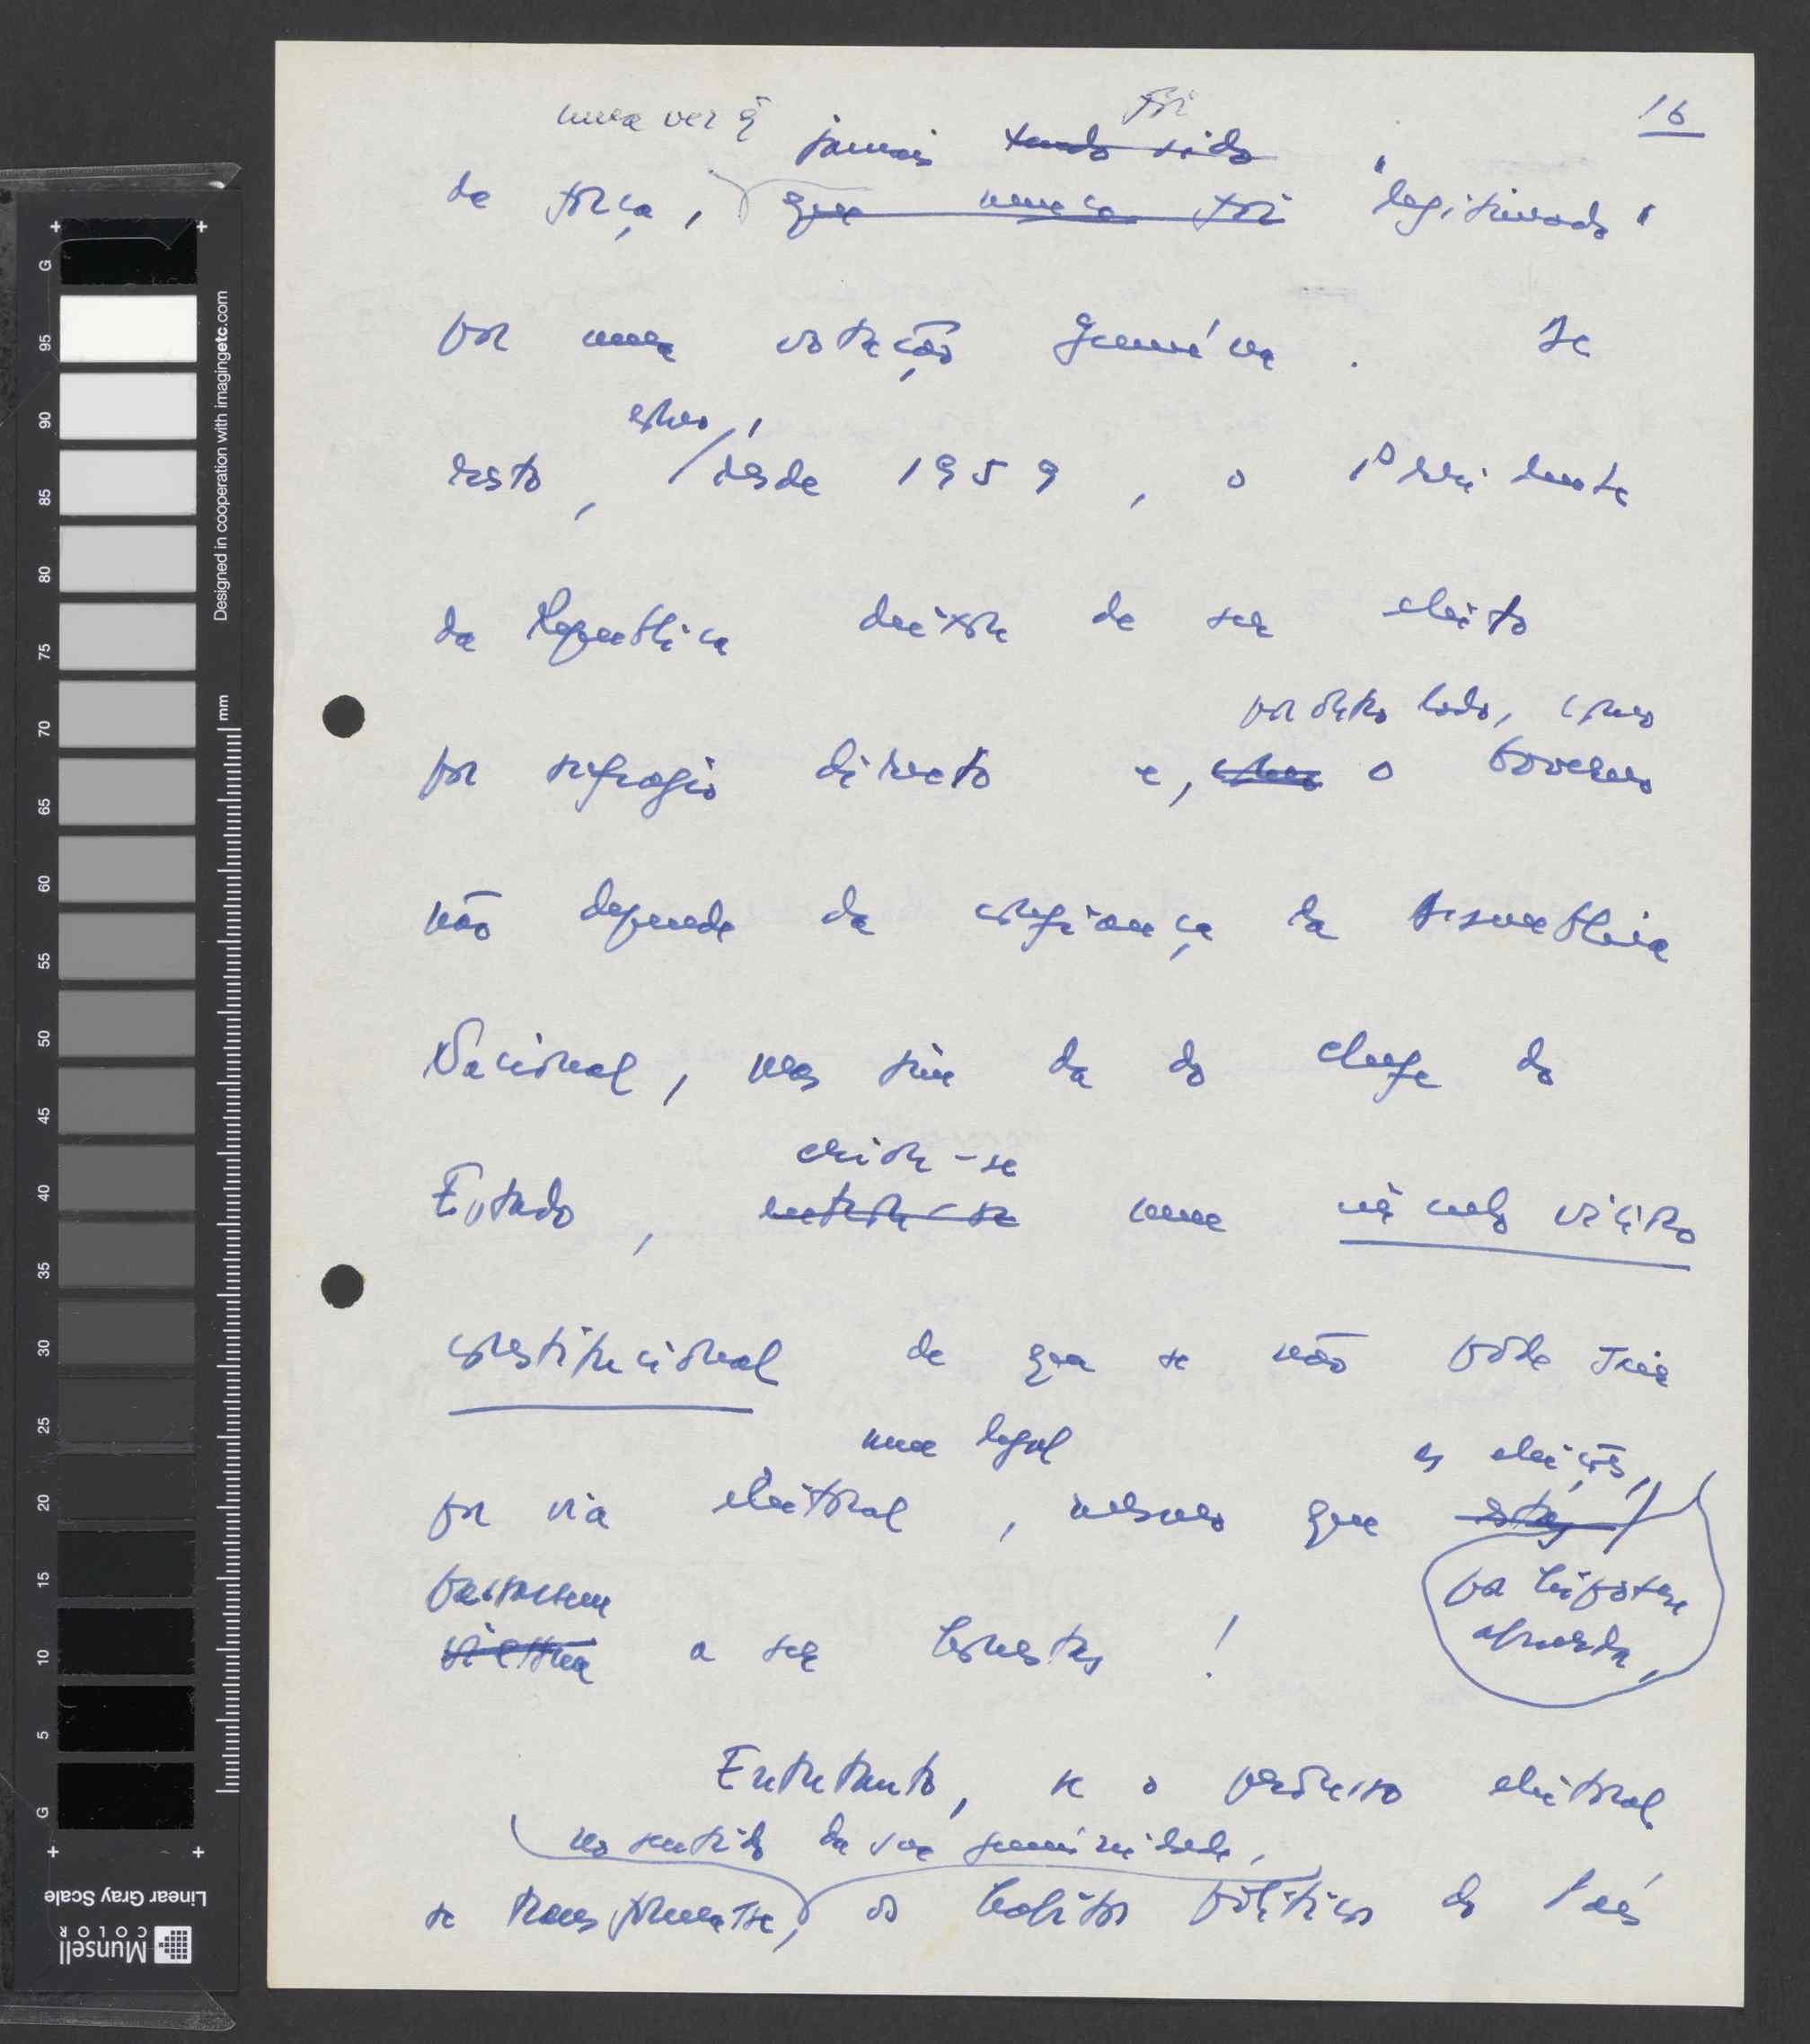 16
uma vez q̃ jamais tendo sido foi
de força, que nunca foi "legitimado"
por uma votação genuína. De
resto, como, desde 1959, o Presidente
da República deixou de ser eleito
por sufrágio directo e, como por outro lado, como o Governo
não depende da confiança da Assembleia
Nacional, mas sim da do chefe do
Estado, criou-se um círculo vicioso
constitucional de que se não pode sair
por via eleitoral legal, mesmo que as eleições, por hipótese absurda,
passassem a ser honestas!
Entretanto, se o processo eleitoral
no sentido da sua genuinidade,
se transformasse, os hábitos políticos do País
Designed in cooperation with imagingetc.com
mm
G 95 90 85 80 75 70 65 60 55 50 45 40 35 30 25 20 15 10 5 G
Linear Gray Scale
Munsell
COLOR